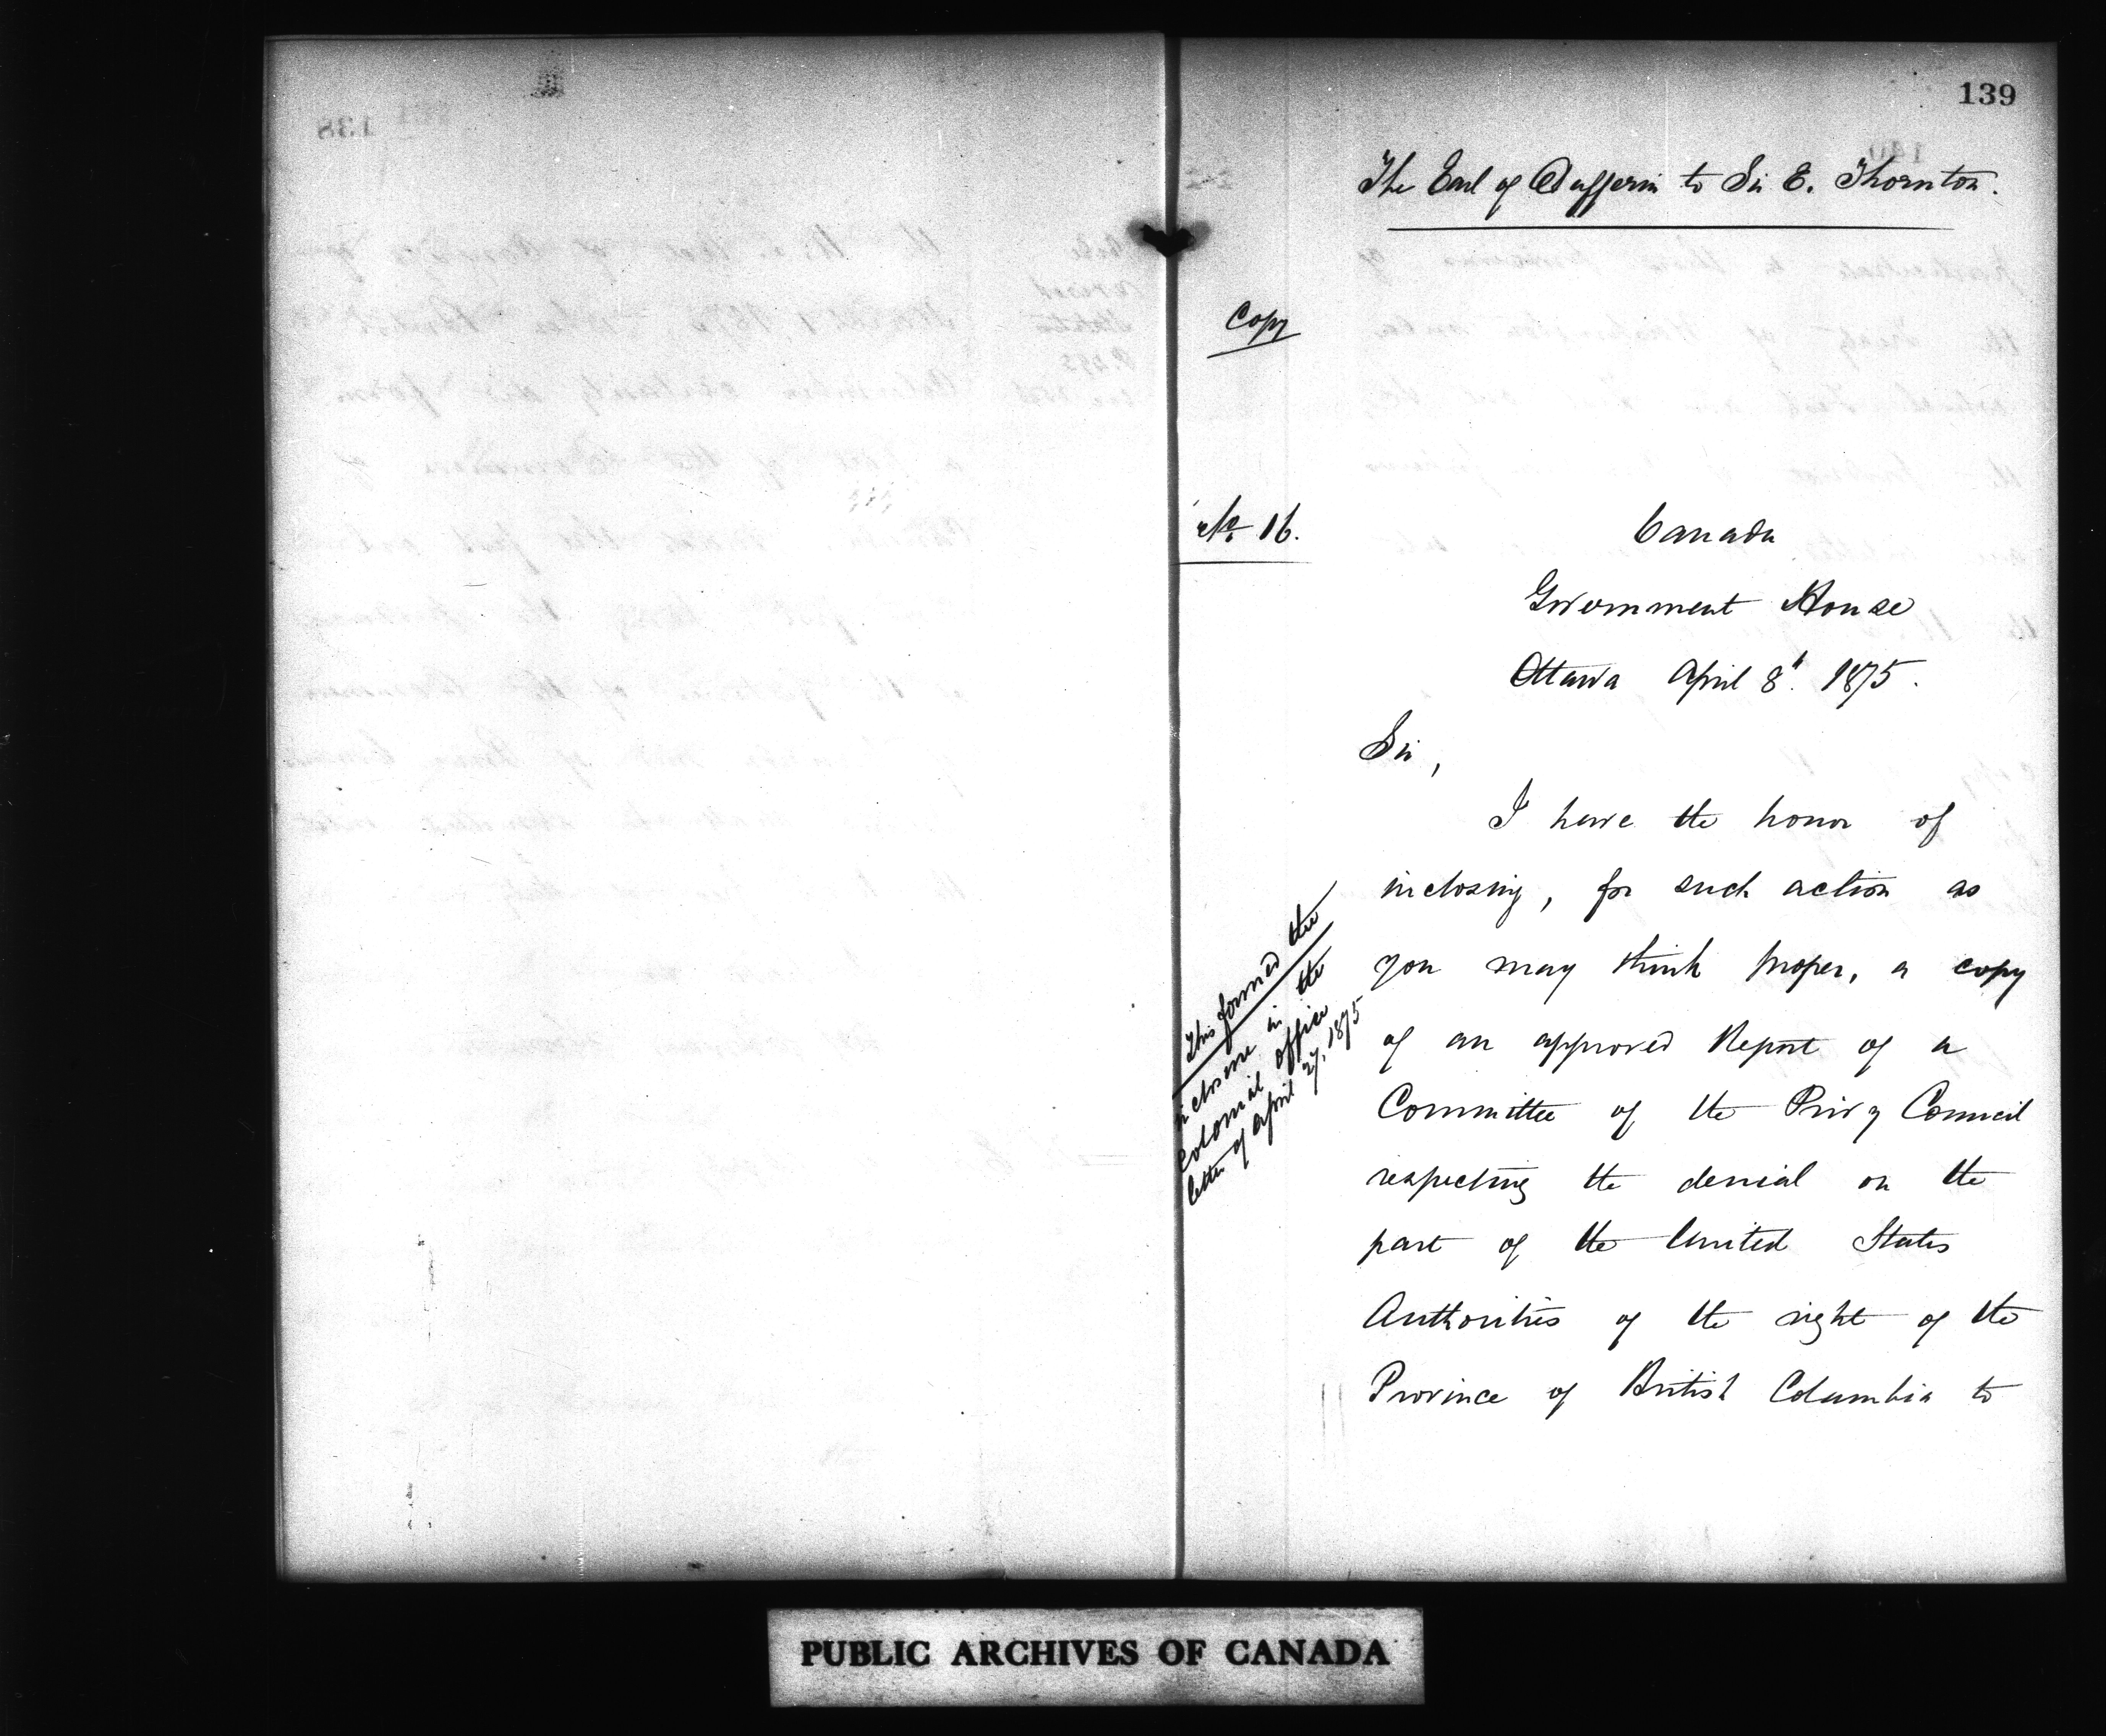 139
The Earl of Dufferin to Sir E. Thornton.
Copy
No 16.
Canada
Government House
Ottawa April 8th. 1875.
Sir,
I have the honor of
inclosing, for such action as
you may think proper, a copy
of an approved Report of a
Committee of the Privy Council
respecting the denial on the
part of the United States
Authorities of the right of the
Province of British Columbia to
This formed the
inclosure in the
Colonial Office
letter of April 27, 1875
138
140
PUBLIC ARCHIVES OF CANADA